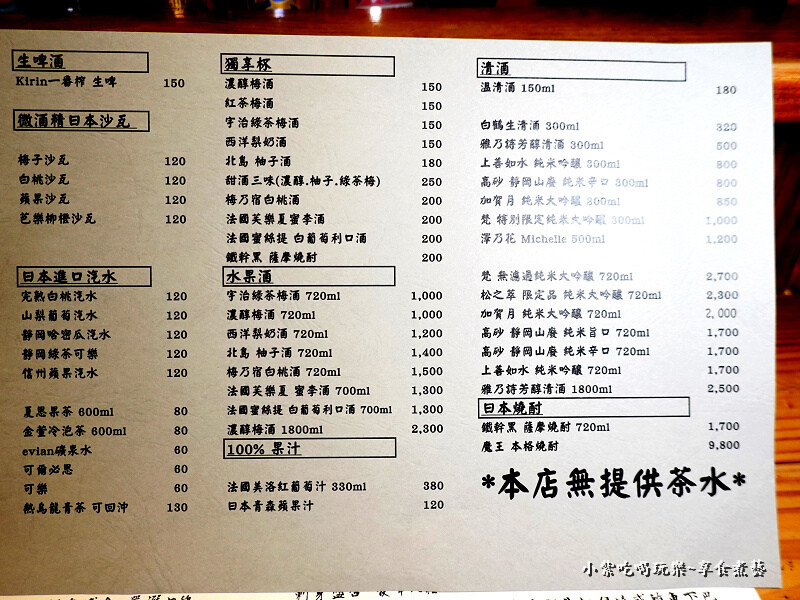 生啤酒
Kirin一番榨 生啤 150
微酒精日本沙瓦
梅子沙瓦 120
白桃沙瓦 120
蘋果沙瓦 120
芭樂柳橙沙瓦 120
日本進口汽水
完熟白桃汽水 120
山梨葡萄汽水 120
靜岡哈密瓜汽水 120
靜岡綠茶可樂 120
信州蘋果汽水 120
夏思果茶 600ml 80
金萱冷泡茶 600ml 80
evian礦泉水 60
可爾必思 60
可樂 60
熱烏龍青茶 可回沖 130
獨享杯
濃醇梅酒 150
紅茶梅酒 150
宇治綠茶梅酒 150
西洋梨奶酒 150
北島 柚子酒 180
甜酒三味(濃醇.柚子.綠茶梅) 250
梅乃宿白桃酒 200
法國芙樂夏蜜李酒 200
法國蜜絲提 白葡萄利口酒 200
鐵幹黑 薩摩燒酎 200
水果酒
宇治綠茶梅酒 720ml 1,000
濃醇梅酒 720ml 1,000
西洋梨奶酒 720ml 1,200
北島 柚子酒 720ml 1,400
梅乃宿白桃酒 720ml 1,500
法國芙樂夏 蜜李酒 700ml 1,300
法國蜜絲提 白葡萄利口酒 700ml 1,300
濃醇梅酒 1800ml 2,300
100% 果汁
法國美洛紅葡萄汁 330ml 380
日本青森蘋果汁 120
清酒
溫清酒 150ml 180
白鶴生清酒 300ml 320
雅乃詩芳醇清酒 300ml 500
上善如水 純米吟釀 300ml 800
高砂 靜岡山廢 純米辛口 300ml 800
加賀月 純米大吟釀 300ml 850
梵 特別限定純米大吟釀 300ml 1,000
澤乃花 Michelle 500ml 1,200
梵 無濾過純米大吟釀 720ml 2,700
松之萃 限定品 純米大吟釀 720ml 2,300
加賀月 純米大吟釀 720ml 2,000
高砂 靜岡山廢 純米旨口 720ml 1,700
高砂 靜岡山廢 純米辛口 720ml 1,700
上善如水 純米吟釀 720ml 1,700
雅乃詩芳醇清酒 1800ml 2,500
日本燒酎
鐵幹黑 薩摩燒酎 720ml 1,700
魔王 本格燒酎 9,800
*本店無提供茶水*
小紫吃喝玩樂~享食煮藝